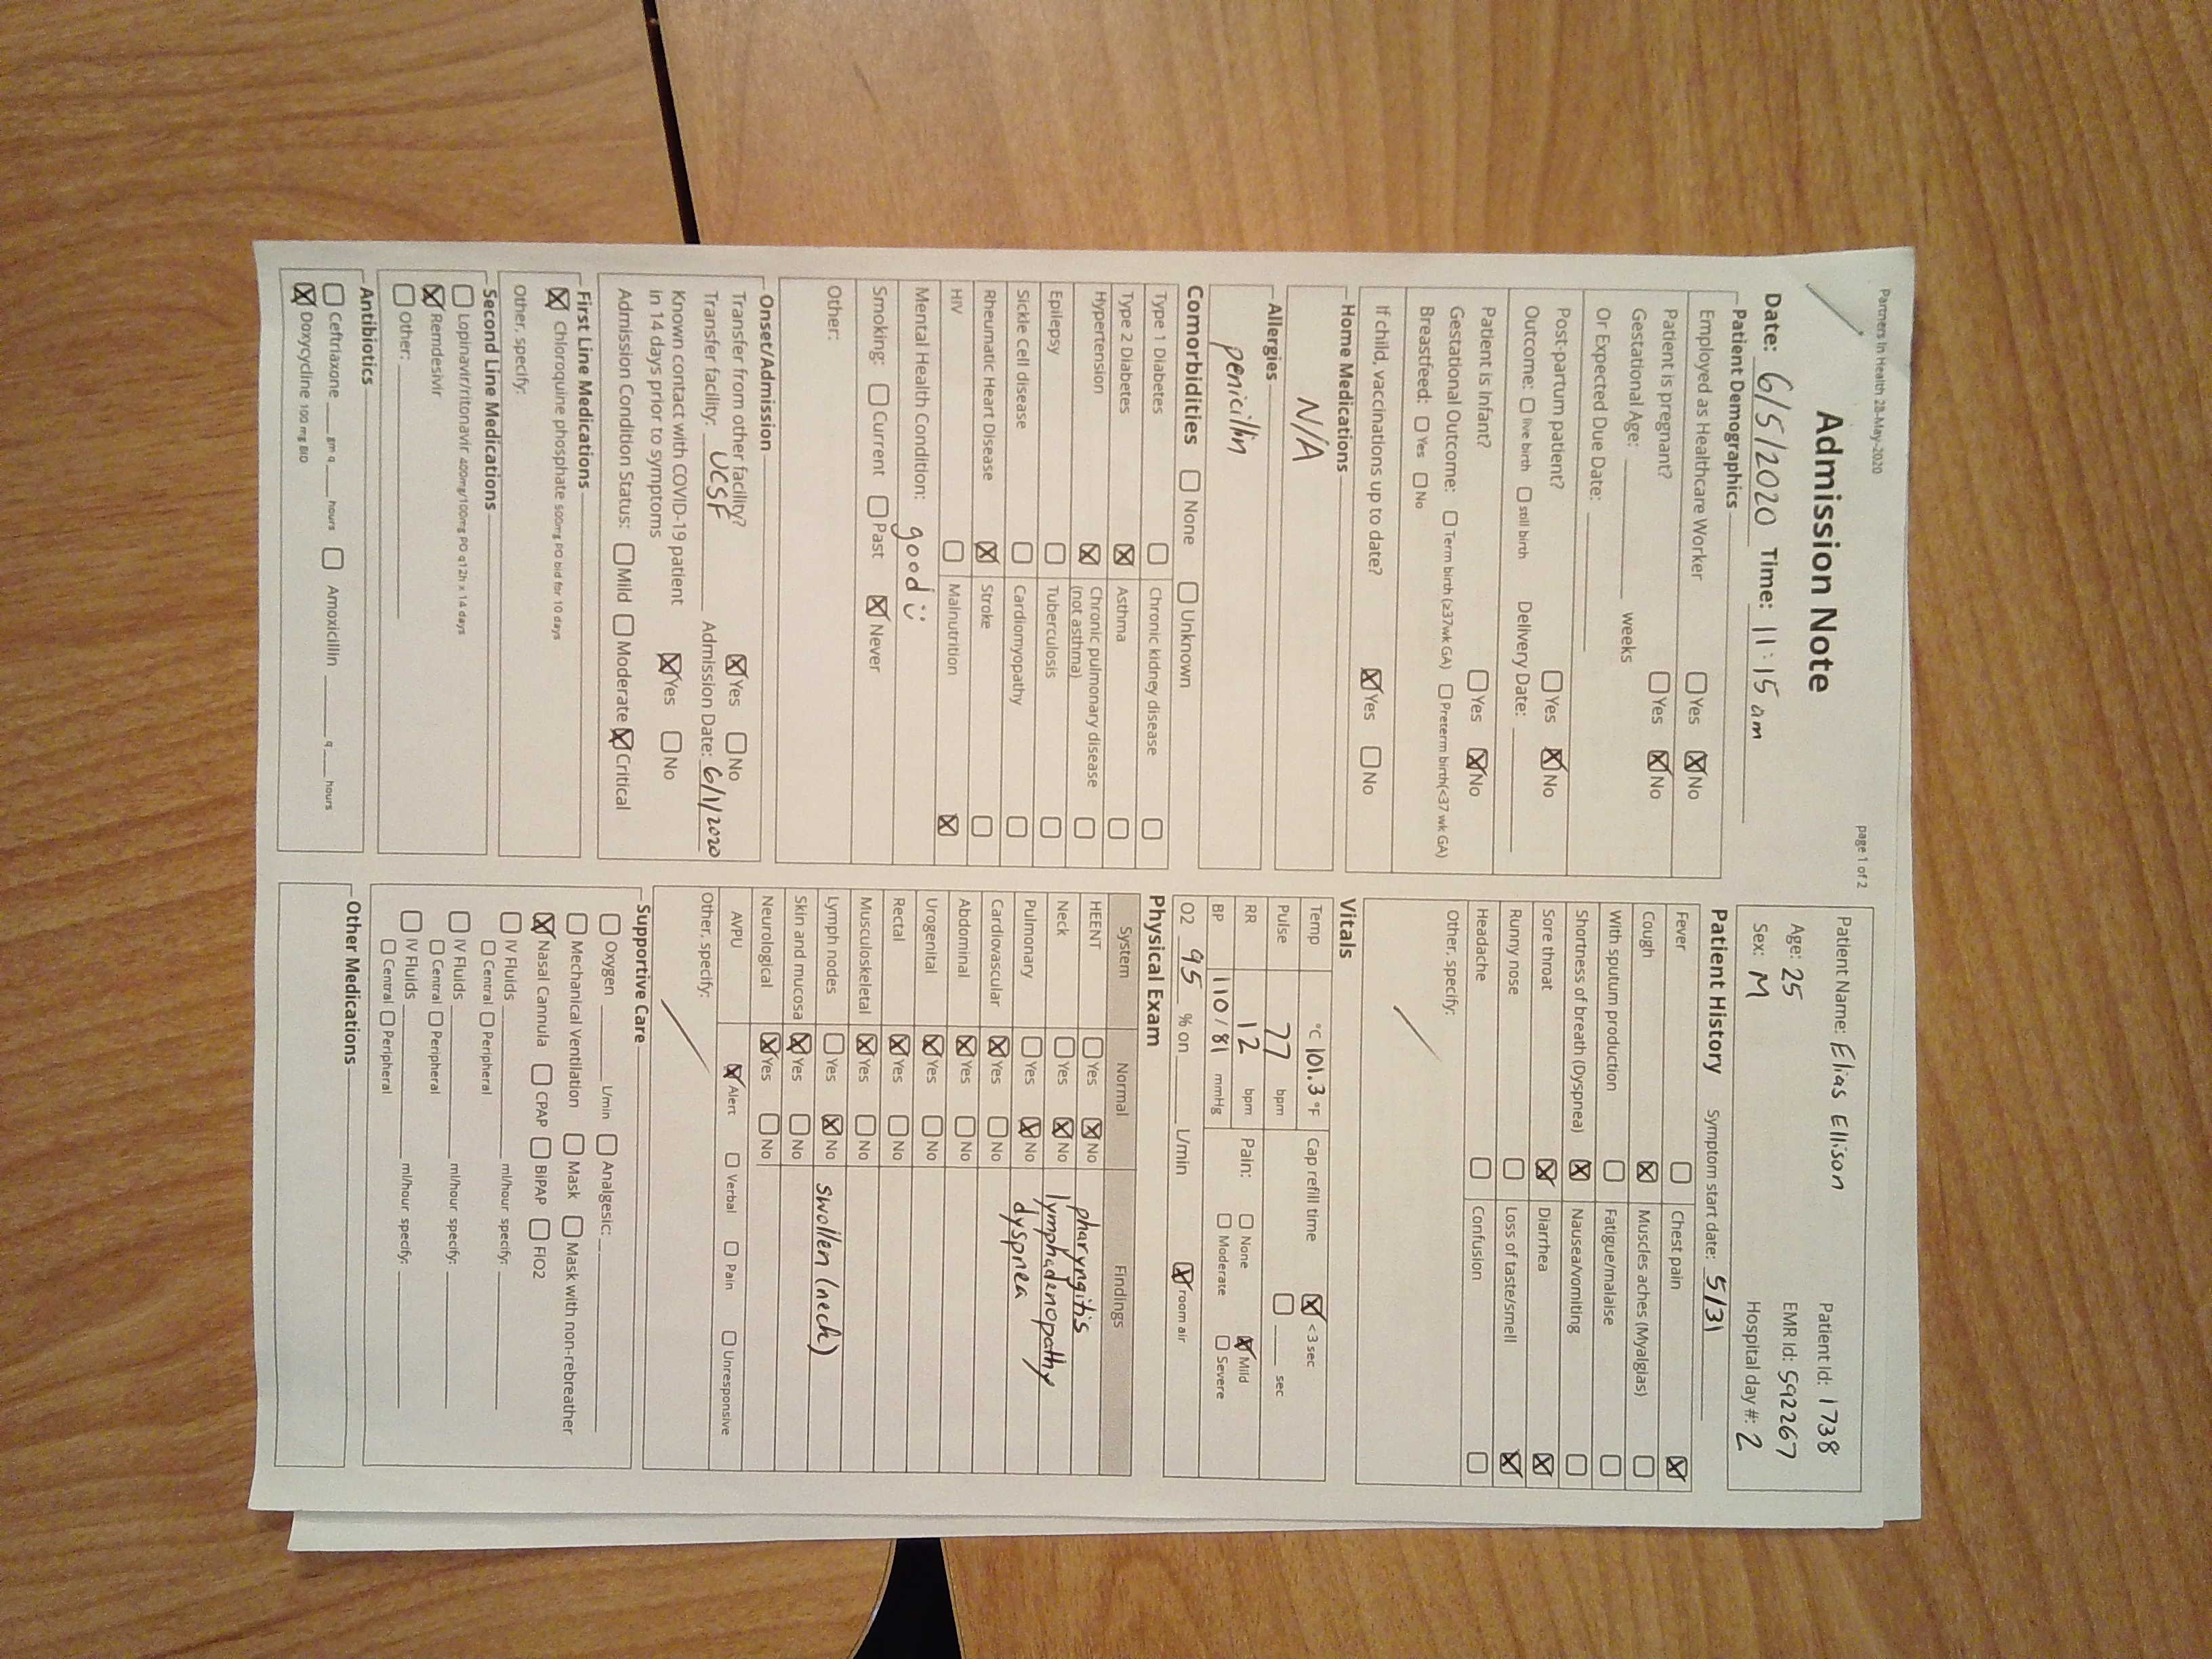 Partners In Health 28-May-2020
page 1 of 2
Admission Note
Date: 6/5/2020 Time: 11:15 am
Patient Name: Elias Ellison
Patient Id: 1738
Age: 25
EMR Id: 592267
Sex: M
Hospital day #: 2
Patient Demographics
Employed as Healthcare Worker ☐ Yes ☒ No
Patient is pregnant? ☐ Yes ☒ No
Gestational Age: ______ weeks
Or Expected Due Date: ______
Post-partum patient? ☐ Yes ☒ No
Outcome: ☐ live birth ☐ still birth Delivery Date: ______
Patient is Infant? ☐ Yes ☒ No
Gestational Outcome: ☐ Term birth (≥37wk GA) ☐ Preterm birth(<37 wk GA)
Breastfeed: ☐ Yes ☐ No
If child, vaccinations up to date? ☒ Yes ☐ No
Home Medications
N/A
Allergies
penicillin
Comorbidities ☐ None ☐ Unknown
Type 1 Diabetes ☐ Chronic kidney disease ☐
Type 2 Diabetes ☒ Asthma ☐
Hypertension ☒ Chronic pulmonary disease ☐
(not asthma)
Epilepsy ☐ Tuberculosis ☐
Sickle Cell disease ☐ Cardiomyopathy ☐
Rheumatic Heart Disease ☒ Stroke ☐
HIV ☐ Malnutrition ☒
Mental Health Condition: good :)
Smoking: ☐ Current ☐ Past ☒ Never
Other:
Onset/Admission
Transfer from other facility? ☒ Yes ☐ No
Transfer facility: UCSF Admission Date: 6/1/2020
Known contact with COVID-19 patient
in 14 days prior to symptoms ☒ Yes ☐ No
Admission Condition Status: ☐ Mild ☐ Moderate ☒ Critical
First Line Medications
☒ Chloroquine phosphate 500mg PO bid for 10 days
Other, specify:
Second Line Medications
☐ Lopinavir/ritonavir 400mg/100mg PO q12h x 14 days
☒ Remdesivir
☐ Other: ______
Antibiotics
☐ Ceftriaxone ___ gm q ___ hours ☐ Amoxicillin ______ q ___ hours
☒ Doxycycline 100 mg BID
Patient History Symptom start date: 5/31
Fever ☐ Chest pain ☒
Cough ☒ Muscles aches (Myalgias) ☐
With sputum production ☐ Fatigue/malaise ☐
Shortness of breath (Dyspnea) ☒ Nausea/vomiting ☐
Sore throat ☒ Diarrhea ☒
Runny nose ☐ Loss of taste/smell ☒
Headache ☐ Confusion ☐
Other, specify:
Vitals
Temp °C 101.3 °F Cap refill time ☒ < 3 sec
Pulse 77 bpm ☐ ___ sec
RR 12 bpm Pain: ☐ None ☒ Mild
BP 110/81 mmHg ☐ Moderate ☐ Severe
O2 95 % on ______ L/min ☒ room air
Physical Exam
System Normal Findings
HEENT ☐ Yes ☒ No pharyngitis
Neck ☐ Yes ☒ No lymphadenopathy
Pulmonary ☐ Yes ☒ No dyspnea
Cardiovascular ☒ Yes ☐ No
Abdominal ☒ Yes ☐ No
Urogenital ☒ Yes ☐ No
Rectal ☒ Yes ☐ No
Musculoskeletal ☒ Yes ☐ No
Lymph nodes ☐ Yes ☒ No swollen (neck)
Skin and mucosa ☒ Yes ☐ No
Neurological ☒ Yes ☐ No
AVPU ☒ Alert ☐ Verbal ☐ Pain ☐ Unresponsive
Other, specify:
Supportive Care
☐ Oxygen ______ L/min ☐ Analgesic: ______
☐ Mechanical Ventilation ☐ Mask ☐ Mask with non-rebreather
☒ Nasal Cannula ☐ CPAP ☐ BiPAP ☐ FIO2
☐ IV Fluids ______ ml/hour specify: ______
☐ Central ☐ Peripheral
☐ IV Fluids ______ ml/hour specify: ______
☐ Central ☐ Peripheral
☐ IV Fluids ______ ml/hour specify: ______
☐ Central ☐ Peripheral
Other Medications